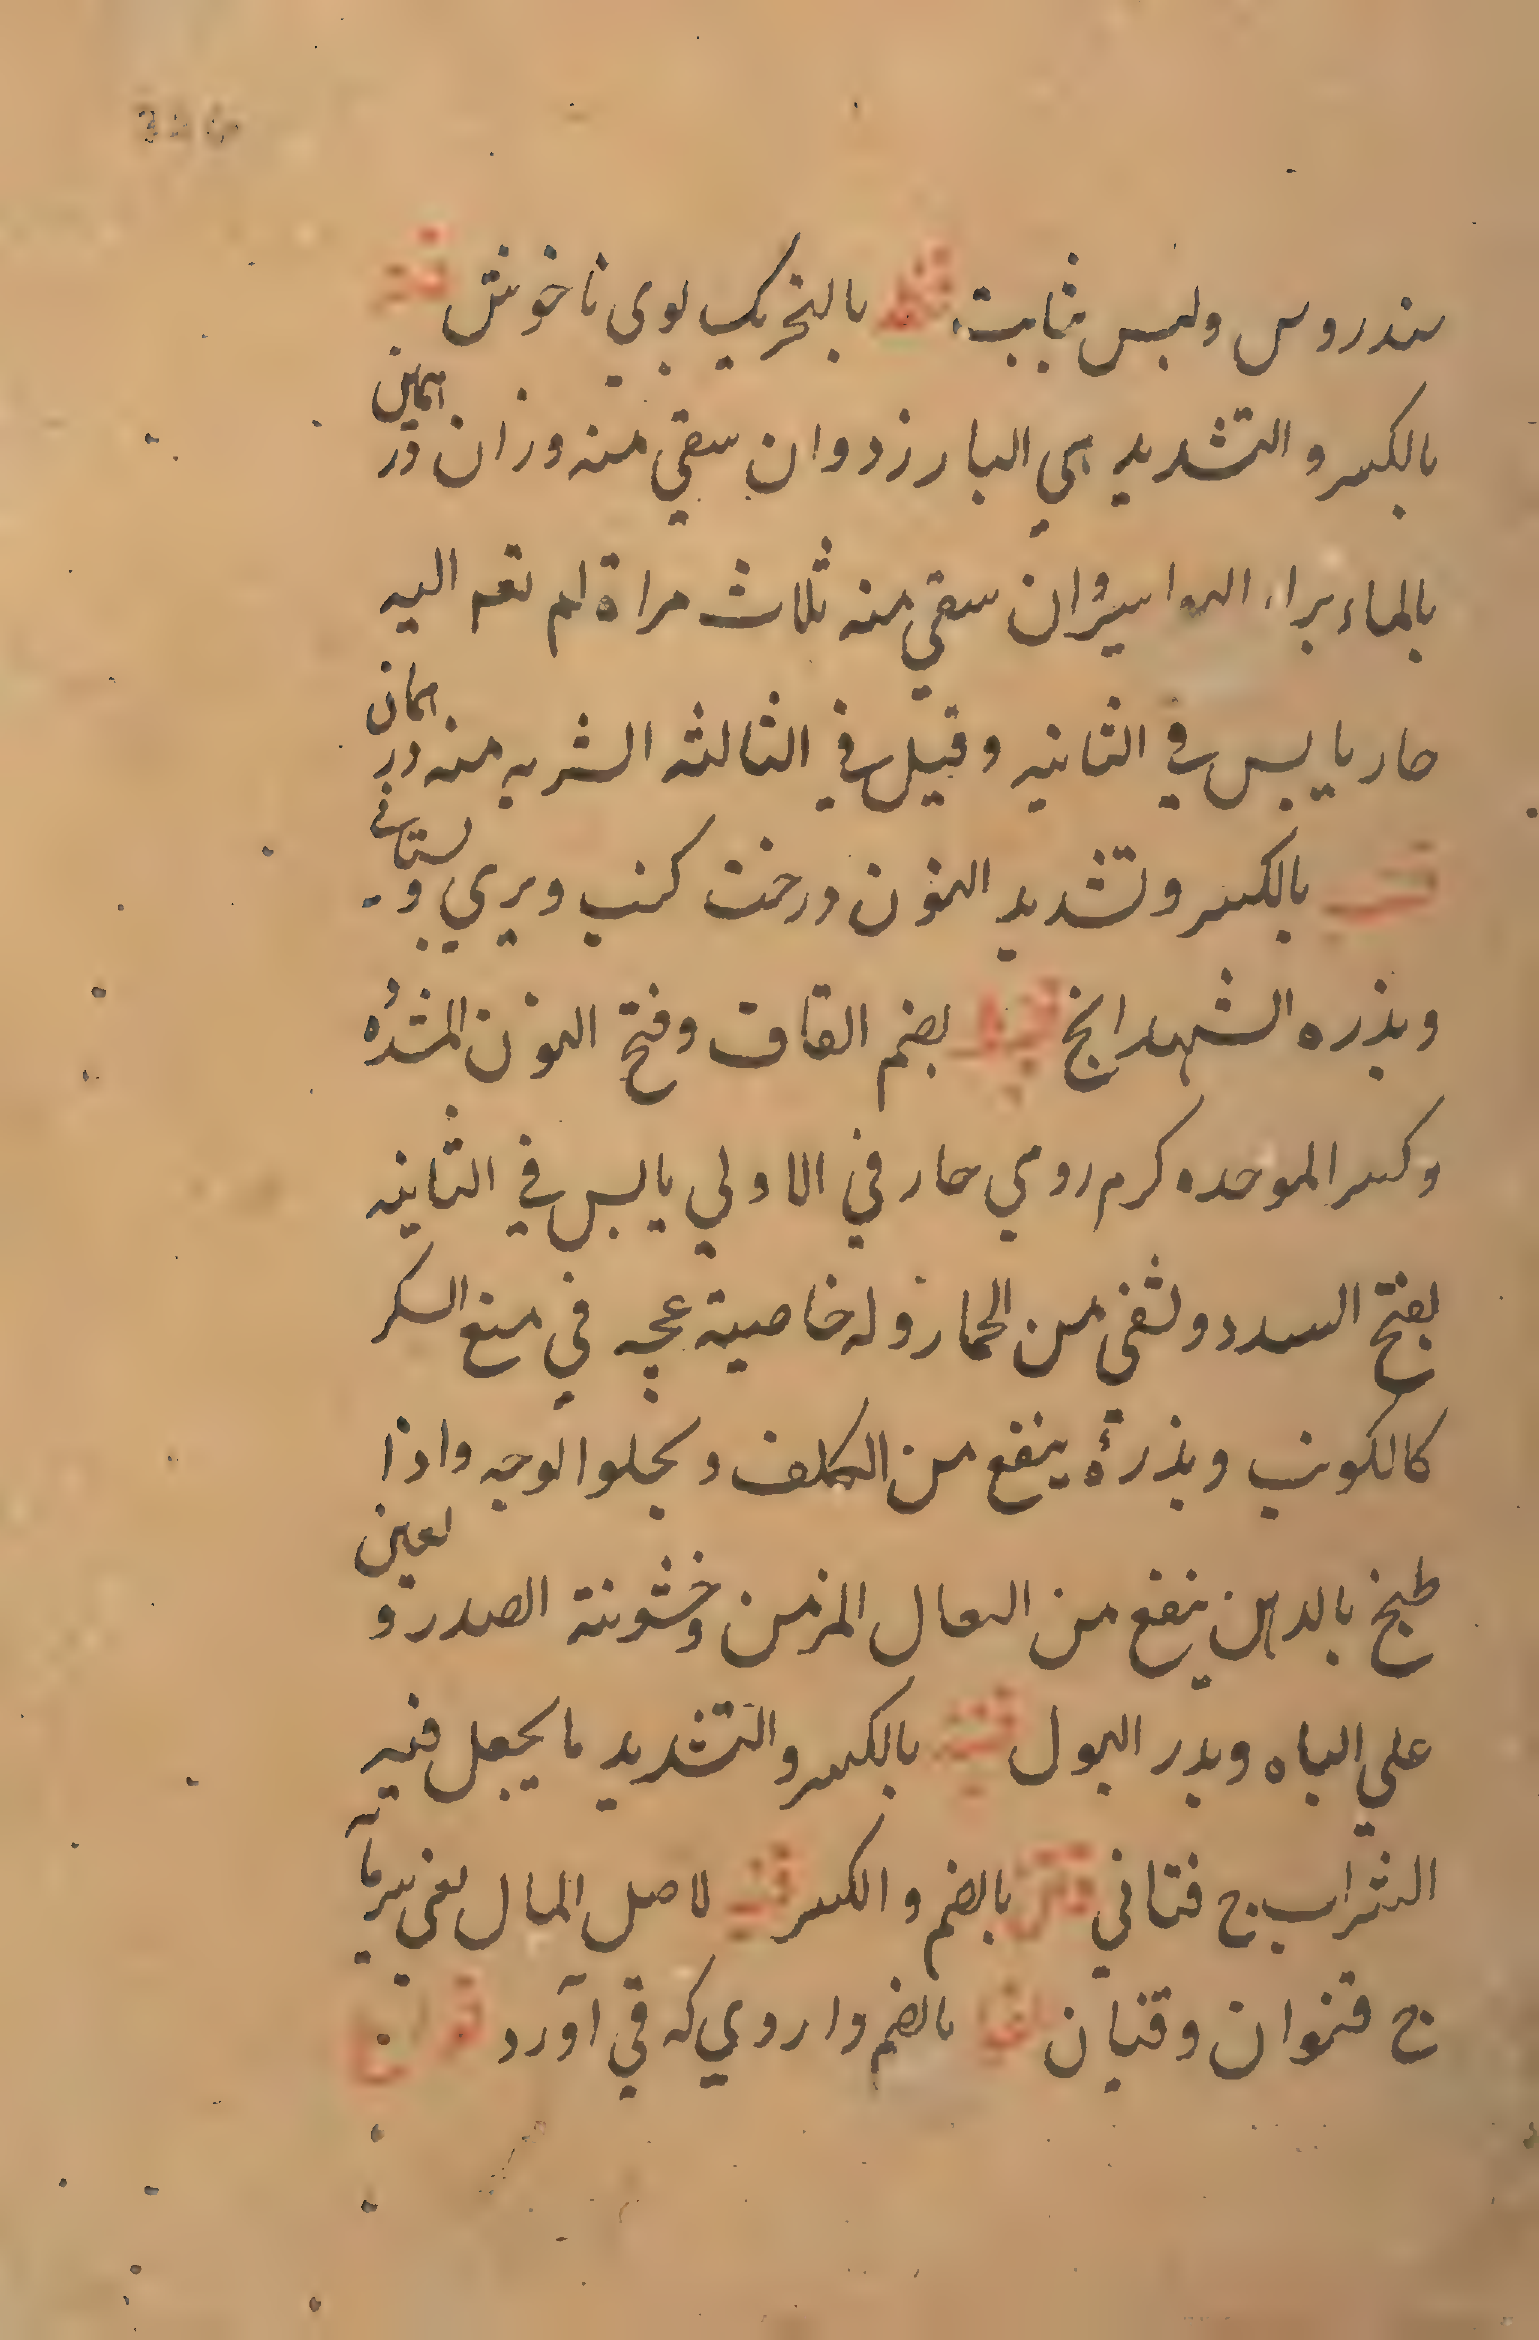 سندروس وليس بثابت قنطه بالتحريك بوي ناخوش قنه
بالكسر والتشديد هي البارزد وان سقي منه وزان درهمين
بالماء براء البواسير وان سقي منه ثلاث مراة لم تعم اليه
حار يابس في الثانيه وقيل في الثالثه الشربه منه درهمان
قنب بالكسر وتشديد النون درخت كنب وبري وبستاني
وبذره الشهدانج بضم القاف وفتح النون المشدده
وكسر الموحده كرم رومي حار في الاولي يابس في الثانيه
يفتح السدد وينفي من الخمار وله خاصية عجيبه في منع السكر
كالكرنب وبذرهٔ ينفع من الكلف ويجلوا الوجه واذا
طبخ بالدهن ينفع من السعال المزمن وخشونة الصدر ويعين
علي الباه ويدر البول قنينه بالكسر والتشديد ما يجعل فيه
الشراب ج قناني بالضم والكسر لاصل المال يعني سرمايه
ج قنوان وقنيان بالضم داروي كه قي آورد